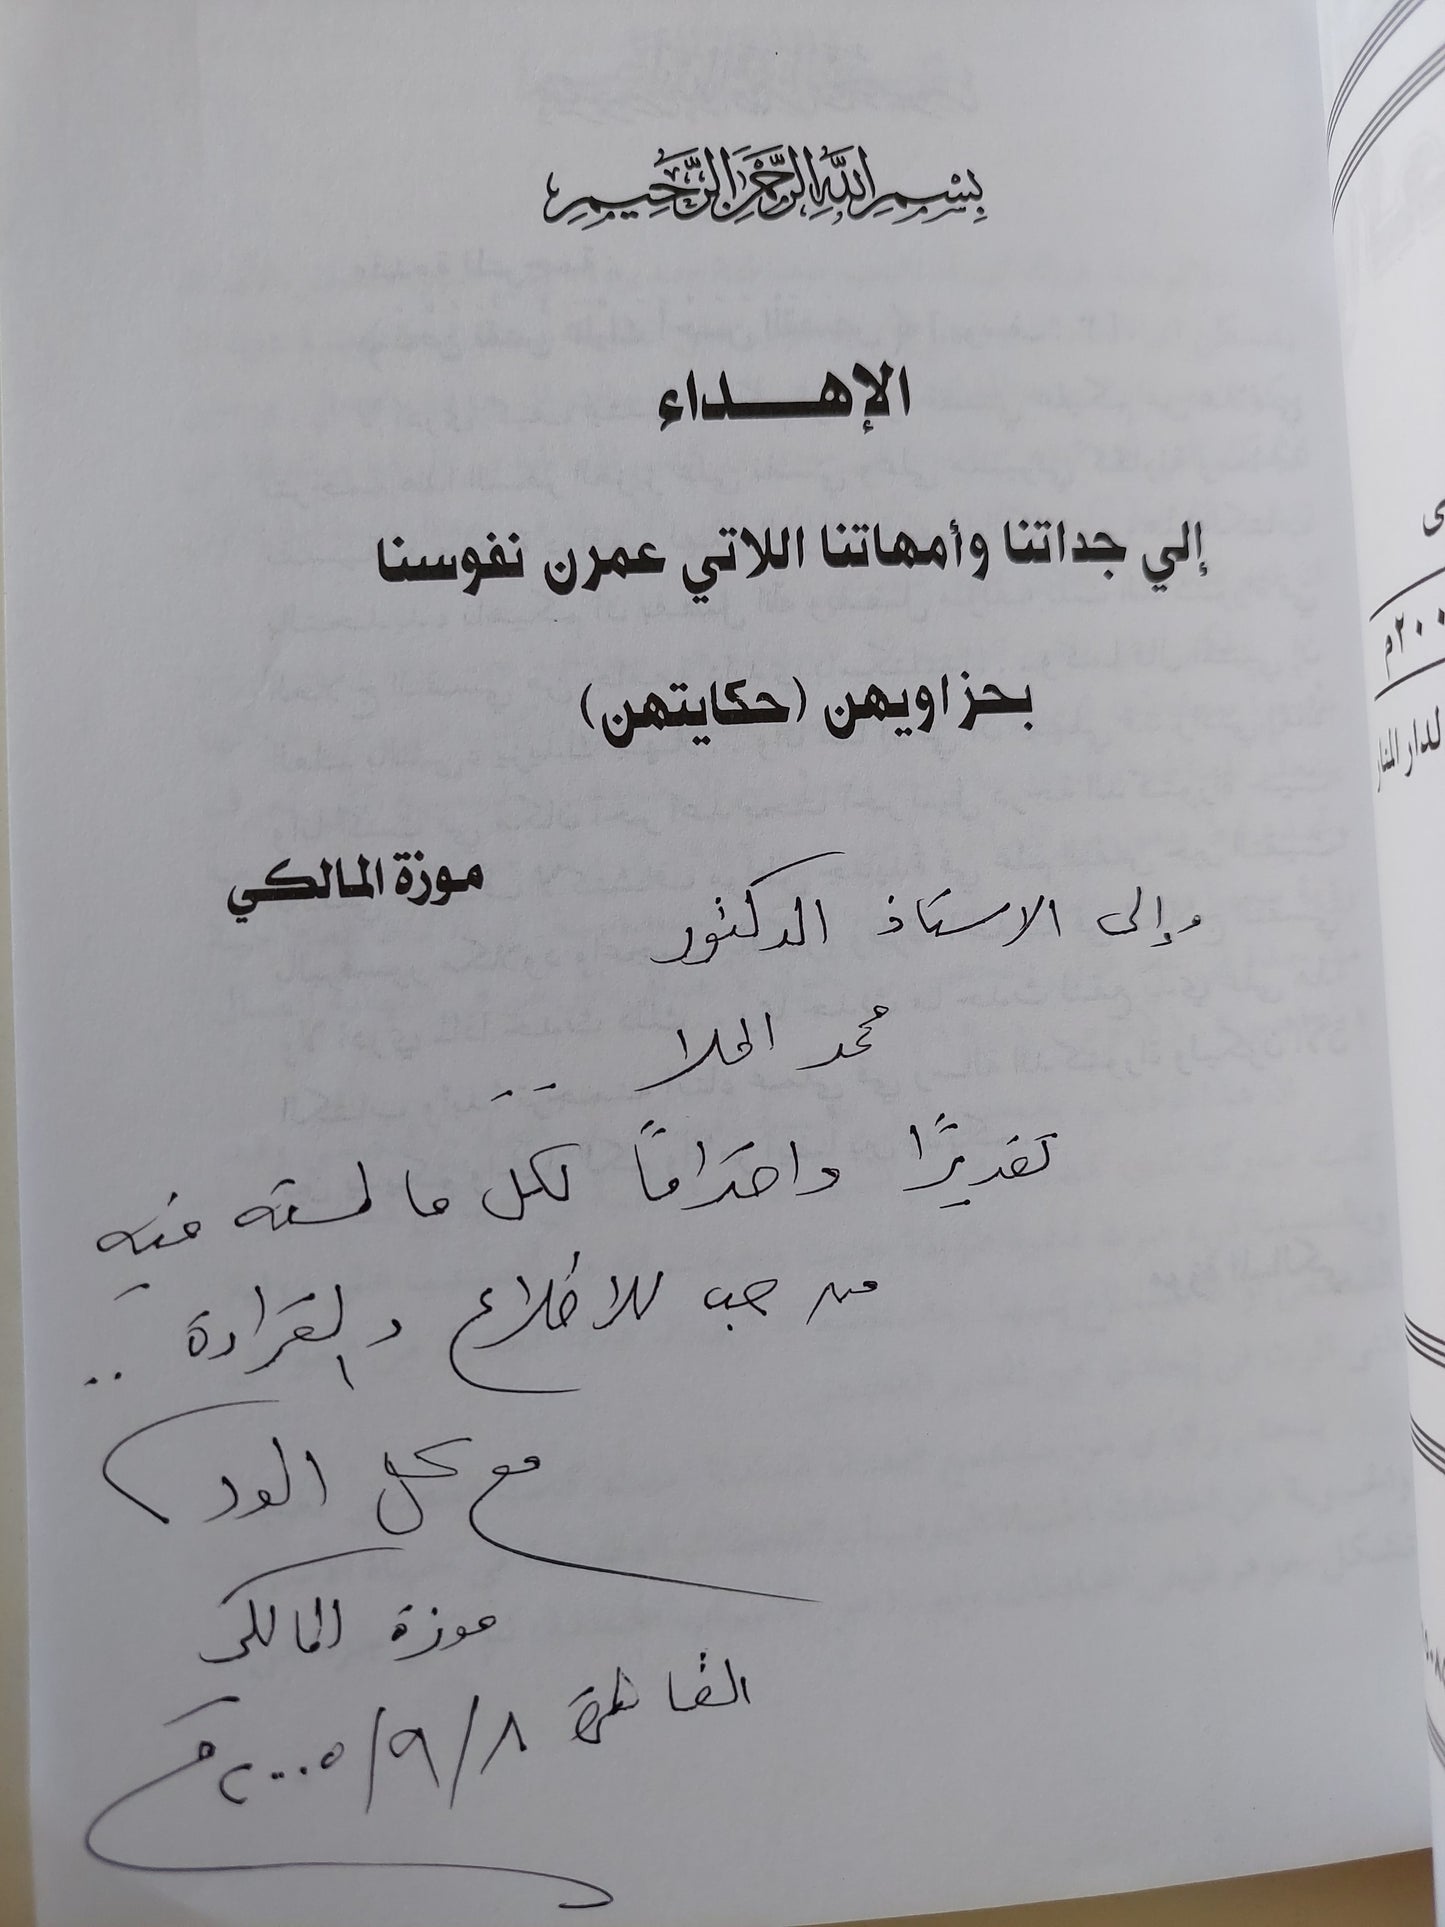 بسم الله الرحمن الرحيم
الإهـــداء
إلي جداتنا وأمهاتنا اللاتي عمرن نفوسنا
بحزاويهن (حكايتهن)
موزة المالكي
وإلى الاستاذ الدكتور
محمد
تقديرًا واحترامًا لكل ما لمسته فيه
من حب للاطلاع والقراءة ..
مع كل الود
موزة المالكي
القاهرة ٨/٩/٢٠٠٥م
ى
٢٠٠م
لدار المنار